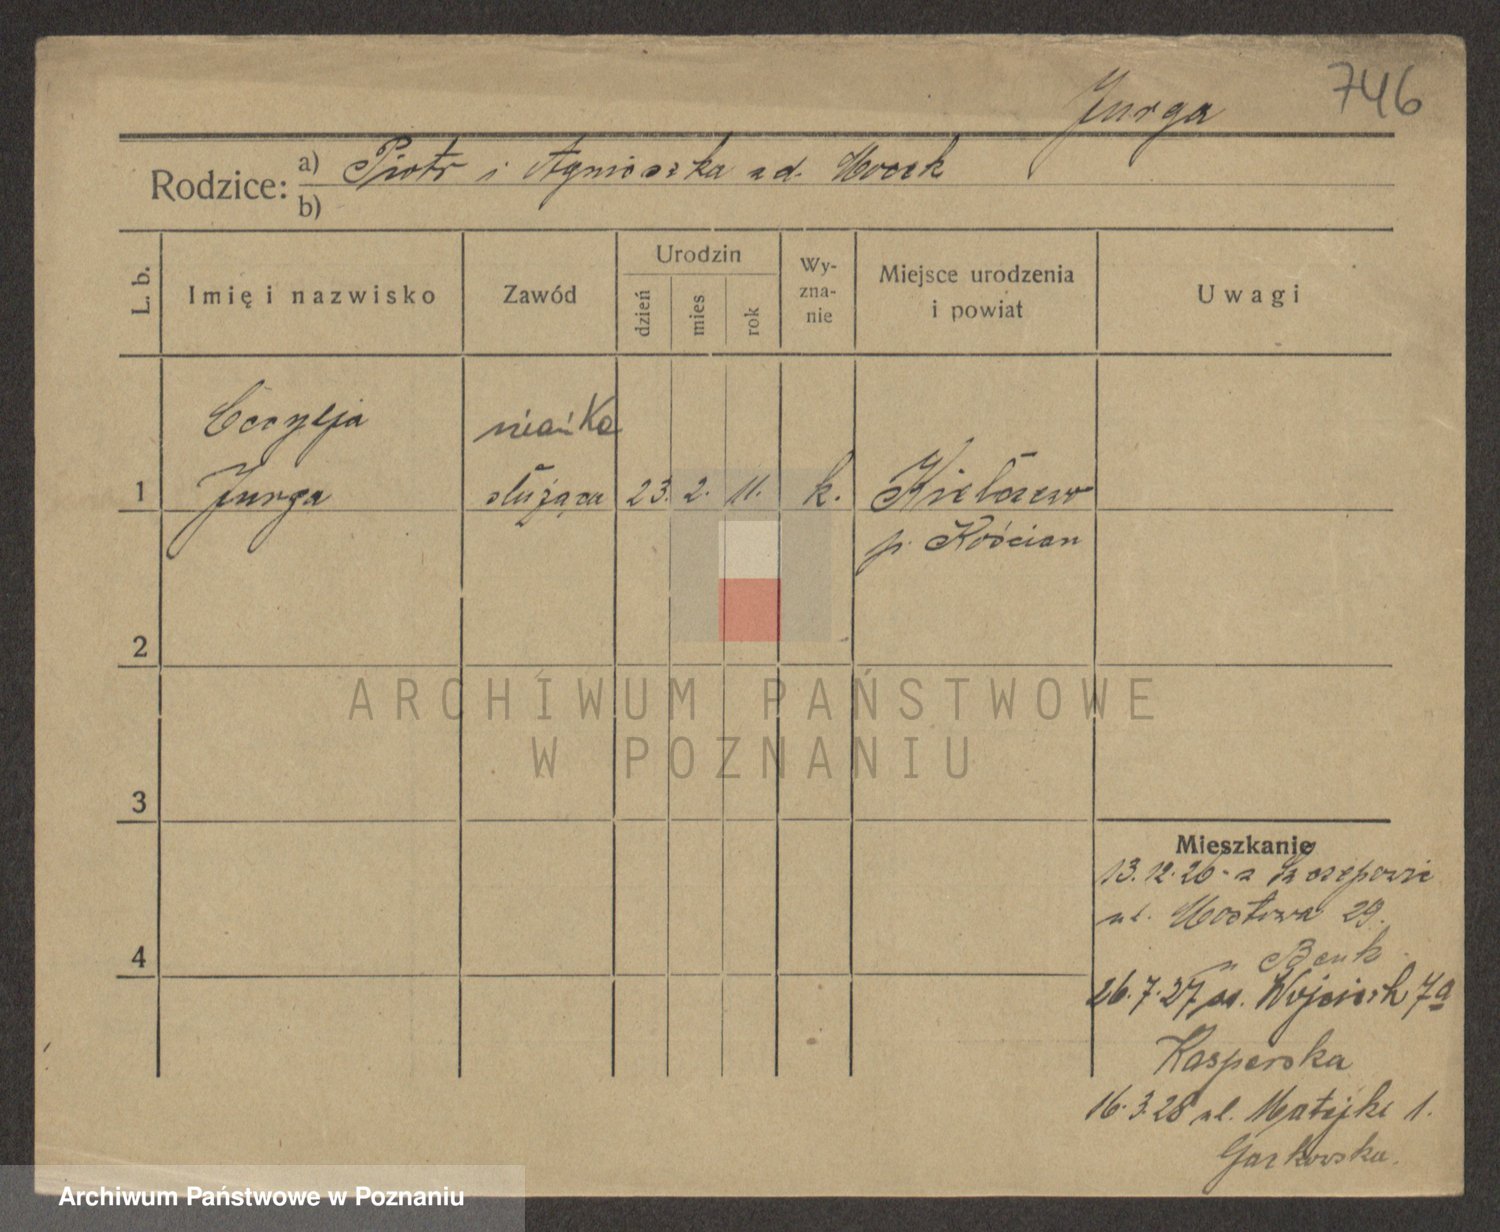 746
Jurga
Rodzice: a) Piotr i Agnieszka zd. Mocek
b)
L. b.
Imię i nazwisko
Zawód
Urodzin
dzień
mies
rok
Wy-
zna-
nie
Miejsce urodzenia
i powiat
Uwagi
Cecylja niańka
1 Jurga służąca 23. 2. 11. k. Kiełczew
p. Kościan
2
ARCHIWUM PAŃSTWOWE
W POZNANIU
3
Mieszkanie
13.12.26 z
ul. Mostowa 29.
4
u Benk
26.7.27 pl. Wojciech 7a
Kasperska
16.3.28 ul. Matejki 1.
Archiwum Państwowe w Poznaniu